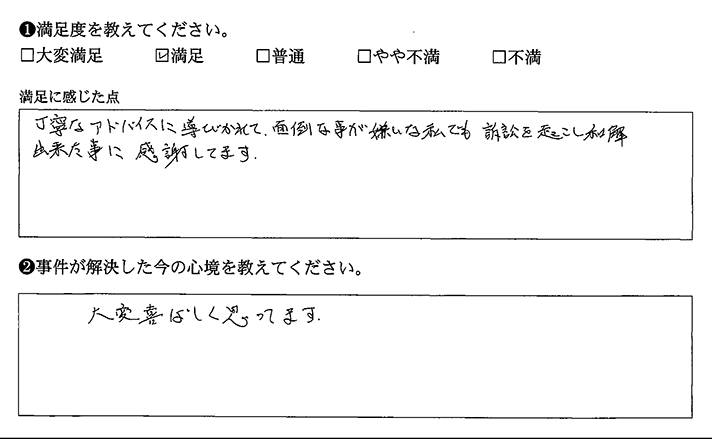 ❶満足度を教えてください。
☐大変満足 ☑満足 ☐普通 ☐やや不満 ☐不満
満足に感じた点
丁寧なアドバイスに導びかれて、面倒な事が嫌いな私でも訴訟を起こし和解
出来た事に感謝してます.
❷事件が解決した今の心境を教えてください。
大変喜ばしく思ってます.